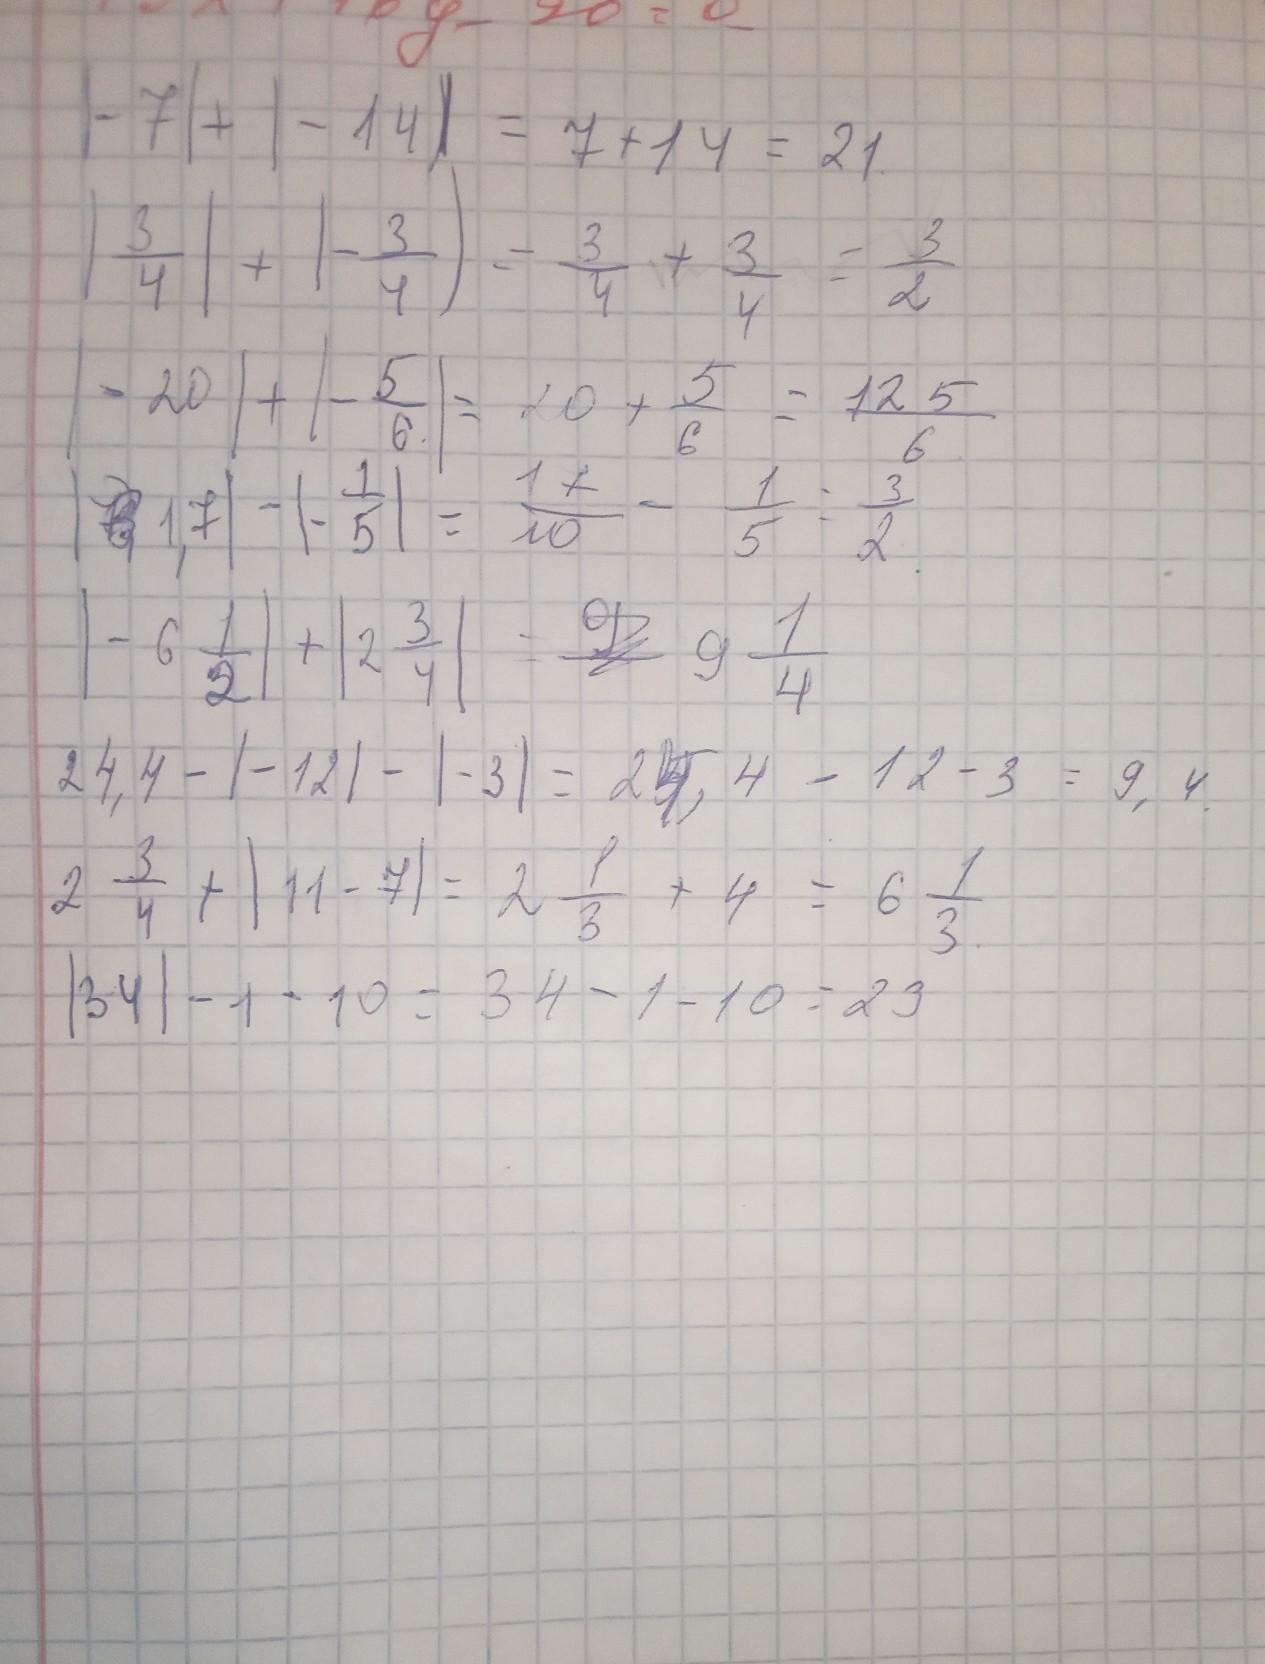 |-7| + |-14| = 7 + 14 = 21
|3/4| + |-3/4) = 3/4 + 3/4 = 3/2
|-20| + |-5/6| = 20 + 5/6 = 125/6
|1,7| - |-1/5| = 17/10 - 1/5 = 3/2
|-6 1/2| + |2 3/4| = 9 1/4
24,4 - |-12| - |-3| = 24,4 - 12 - 3 = 9,4
2 3/4 + |11 - 7| = 2 1/3 + 4 = 6 1/3
|34| - 1 - 10 = 34 - 1 - 10 = 23